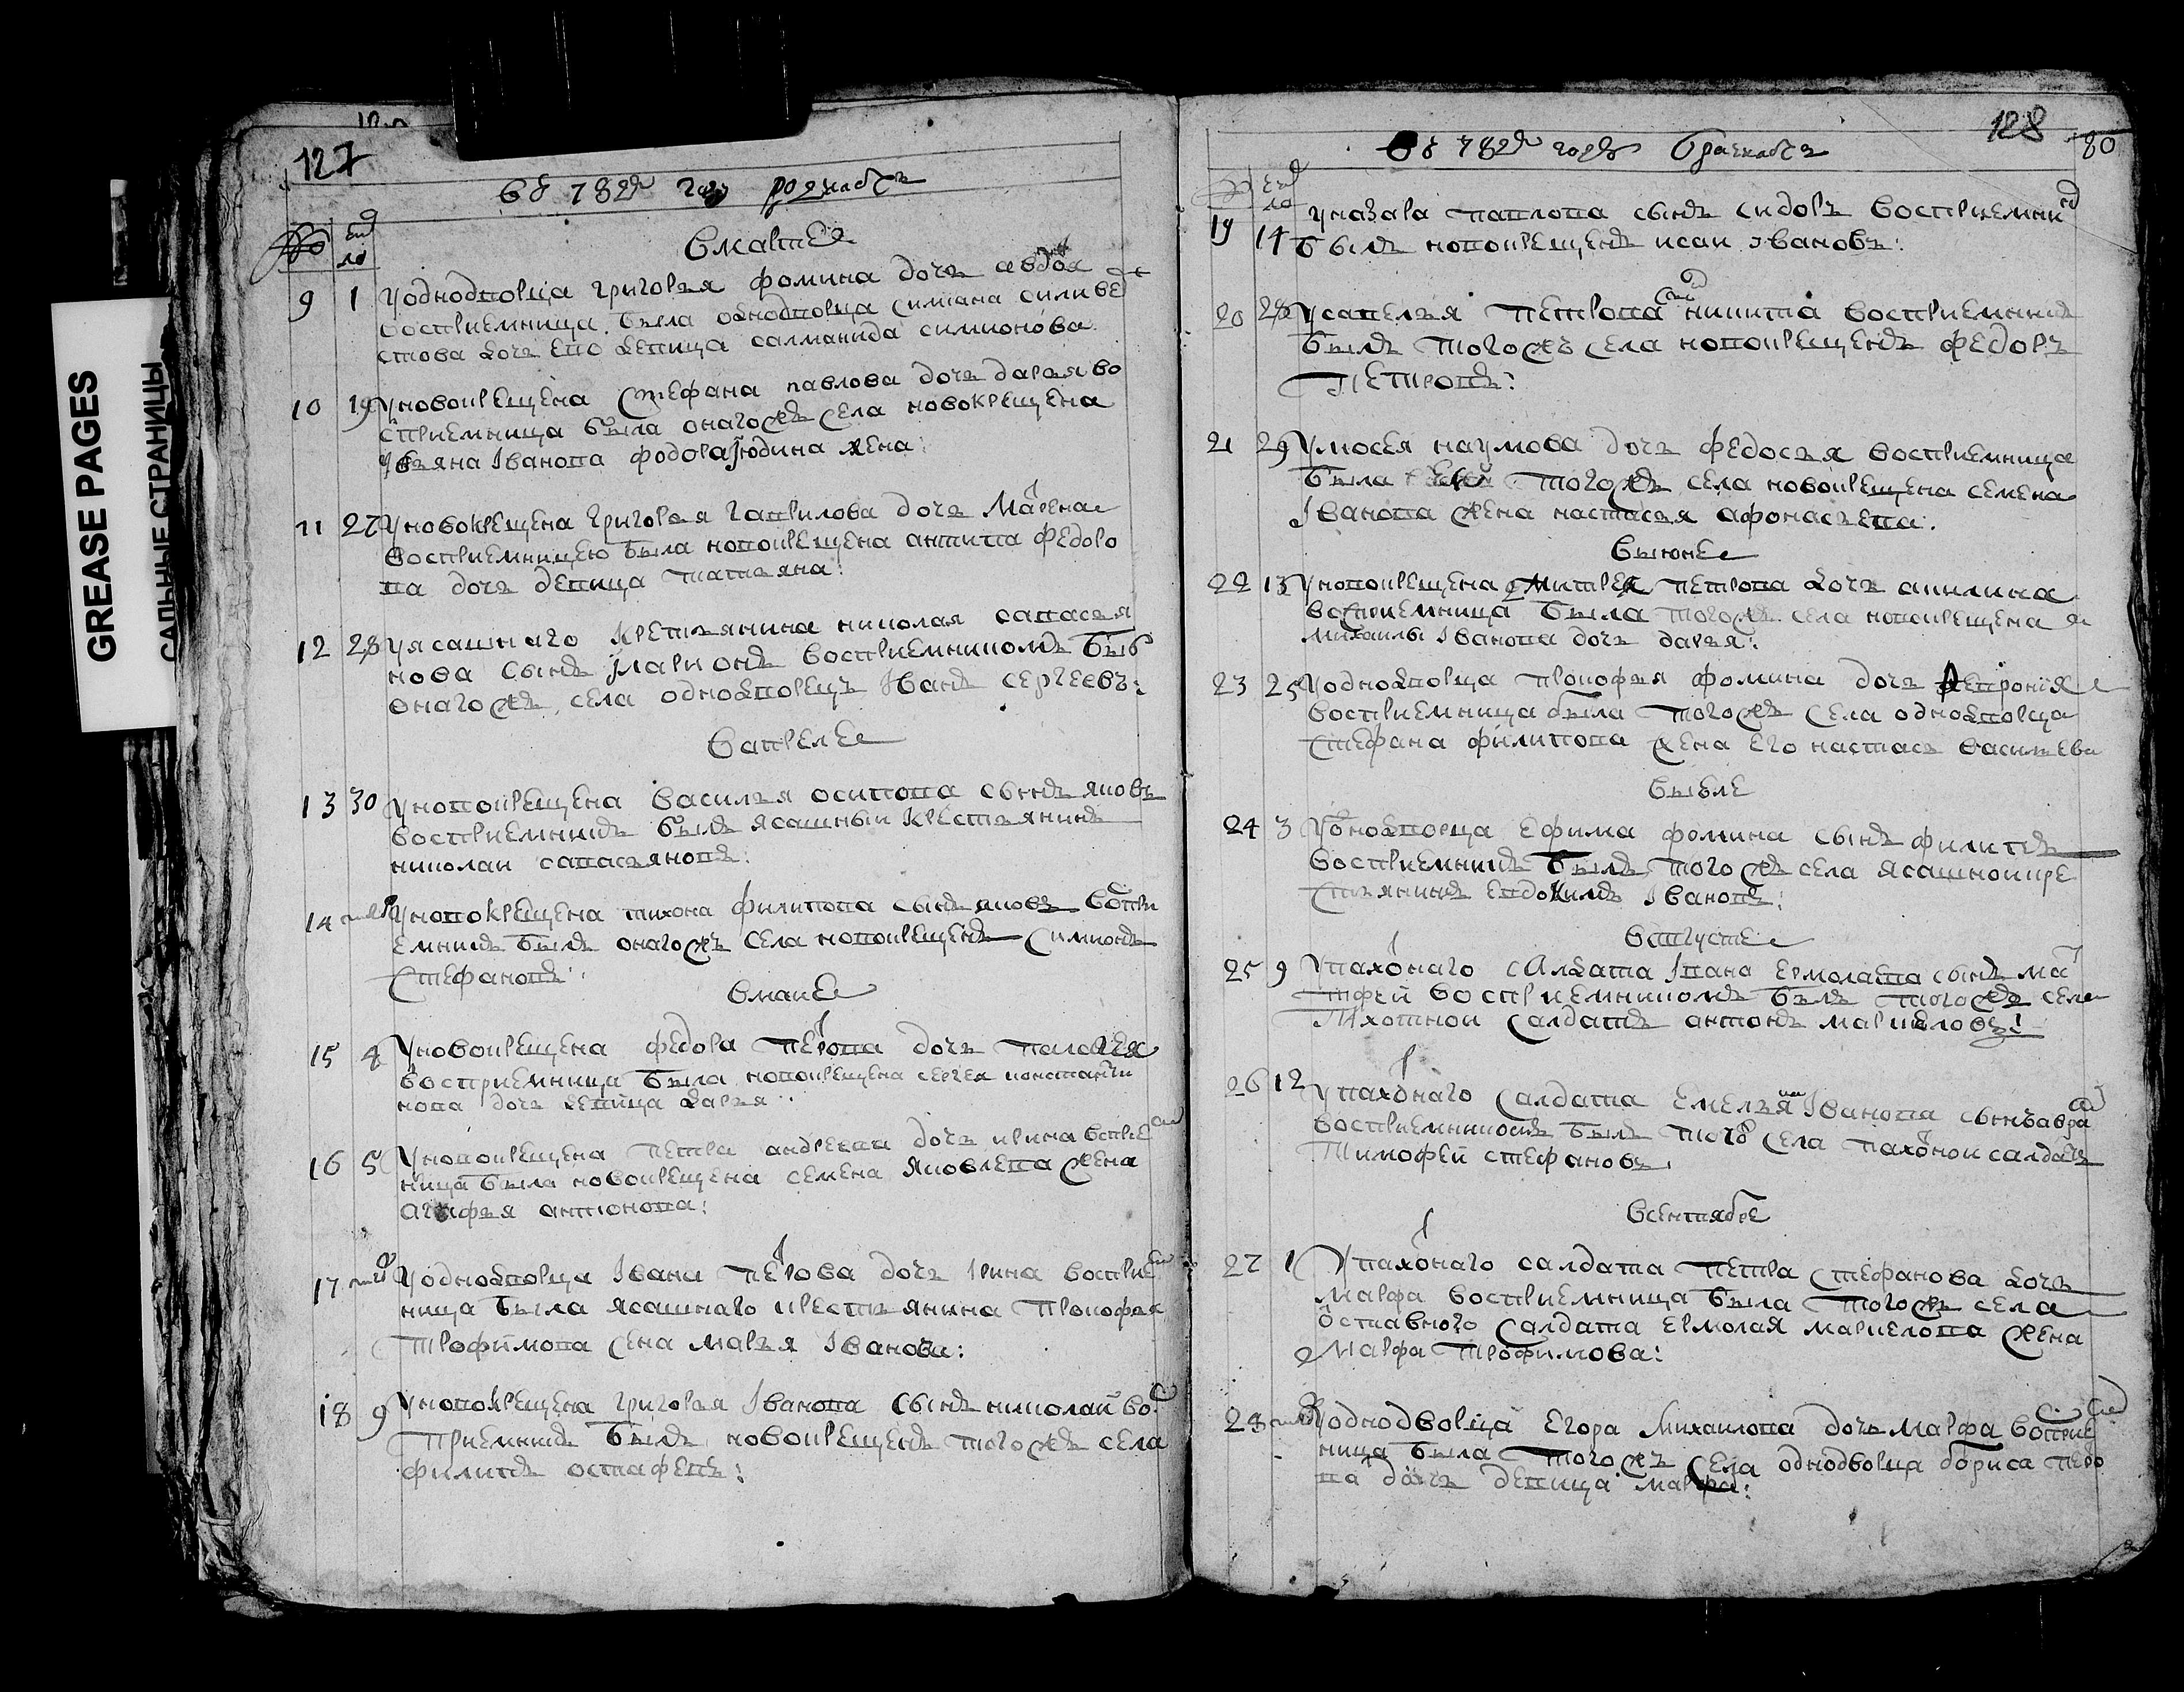 GREASE PAGES
САЛЬНЫЕ СТРАНИЦЫ
127
въ 782м году рождаются
№ число
в марте
9 1 у однодворца григорья фомина дочь авдотя
восприемница была однодворца симиана силиве
стова дочь ево девица саломанида симионова
10 19 у новокрещена стефана павлова дочь дарья во
сприемница была онагожъ села новокрещена
Iванова жена
11 27 у новокрещена григорья гаврилова дочь Марена
восприемницею была новокрещена антипа федоро
ва дочь девица татьяна:
12 28 у ясашнаго крестьянина николая савасья
нова сынъ iларионъ восприемникомъ былъ
онагожъ села однодворецъ Iванъ сергеевъ:
в апреле
13 30 у новокрещена василья осипова сынъ яковъ
восприемникъ былъ ясашный крестьянинъ
николаи савасьяновъ:
14 у новокрещена тихона филипова сынъ яковъ воспри
емникъ былъ онагожъ села новокрещенъ симионъ
стефановъ:
в маие
15 4 у новокрещена федора петрова дочь пелагея
восприемница была новокрещена сергея константи
нова дочь девица дарья:
16 5 у новокрещена петра андреева дочь ирина воспрiем
ница была новокрещена семена яковлева жена
агафья антонова:
17 у однодворца Iвана петрова дочь Iрина восприем
ница была ясашнаго крестьянина прокофья
трофимова жена марья Iванова:
18 9 у новокрещена григорья Iванова сынъ николай вос
приемникъ былъ новокрещенъ тогожъ села
филипъ остафевъ:
128
80
въ 782м году рождаются
№ число
19 14 у назара павлова сынъ сидоръ восприемникъ
былъ новокрещенъ исаи iвановъ:
20 28 у савелья петрова сынъ никита восприемникъ
былъ тогожъ села новокрещенъ федоръ
петровъ:
21 29 у мосея наумова дочь федосья восприемница
была тогожъ села новокрещена семена
Iванова жена настасья афонасьева:
в июне
22 13 у новокрещена Митрея петрова дочь акилина
восприемница была тогожъ села новокрещена
михаилы Iванова дочь дарья:
23 25 у однодворца прокофья фомина дочь
восприемница была тогожъ села однодворца
стефана филипова жена его настась васильева
в июле
24 3 у однодворца ефима фомина сынъ филипъ
восприемникъ былъ тогожъ села ясашнои кре
стьянинъ евдокимъ Iвановъ:
в августе
25 9 у пахотнаго салдата Iвана ермолаева сынъ ма
тфей восприемникомъ былъ тогожъ села
пхотнои салдатъ антонъ маркеловъ:
26 12 у пахотнаго салдата емельяна Iванова сынъ авраам
восприемникомъ былъ того села пахотнои салдатъ
Тимофей стефановъ.
в сентябре
27 1 у пахотнаго салдата петра стефанова дочь
марфа восприемница была тогожъ села
отставного салдата ермолая маркелова жена
марфа трофимова:
28 у однодворца егора михаилова дочь марфа восприем
ница была тогожъ села однодворца бориса петро
ва дочь девица марфа: